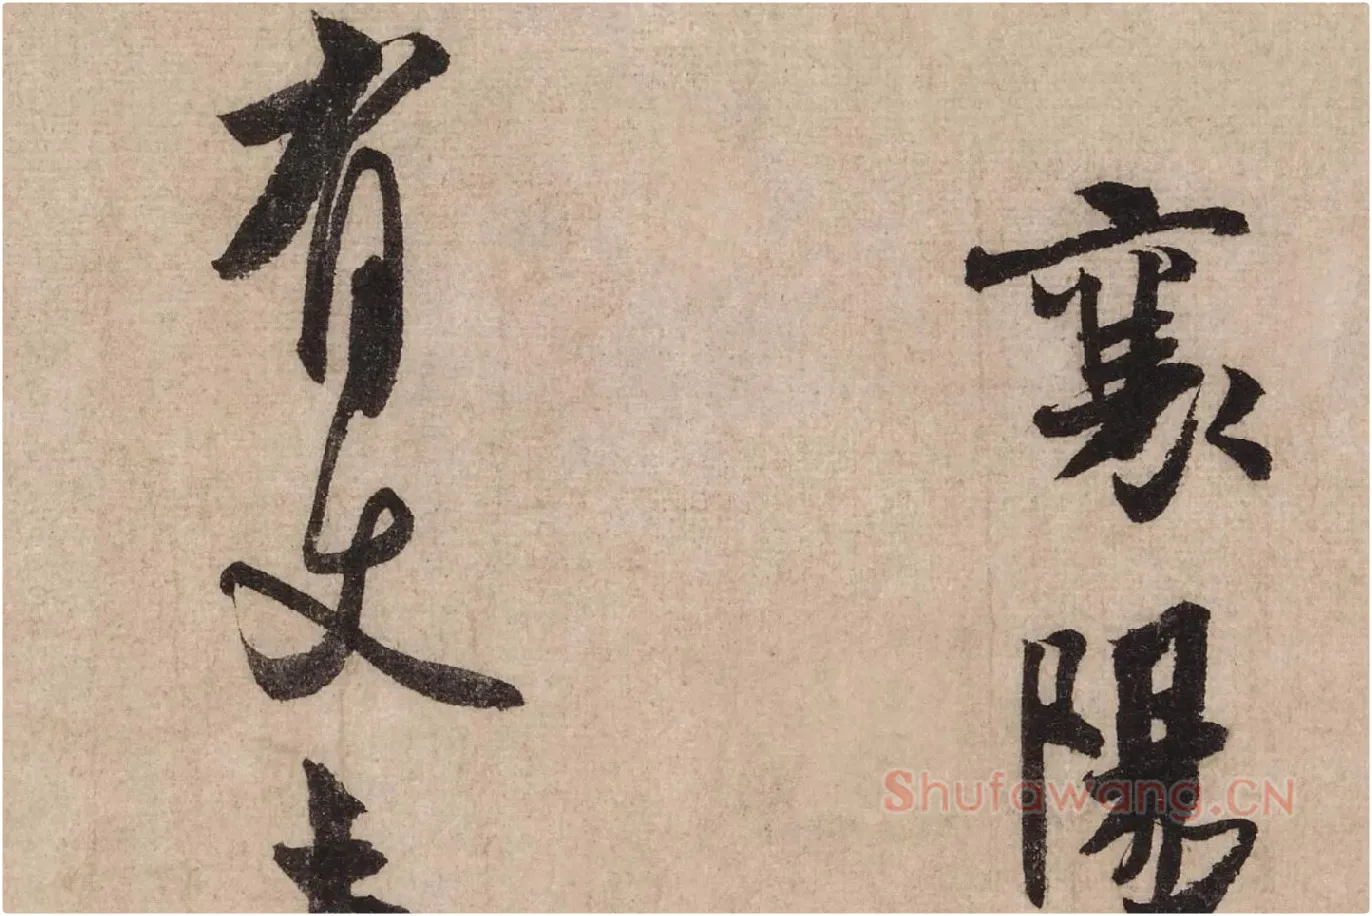 襄陽
有文
Shufawang.CN